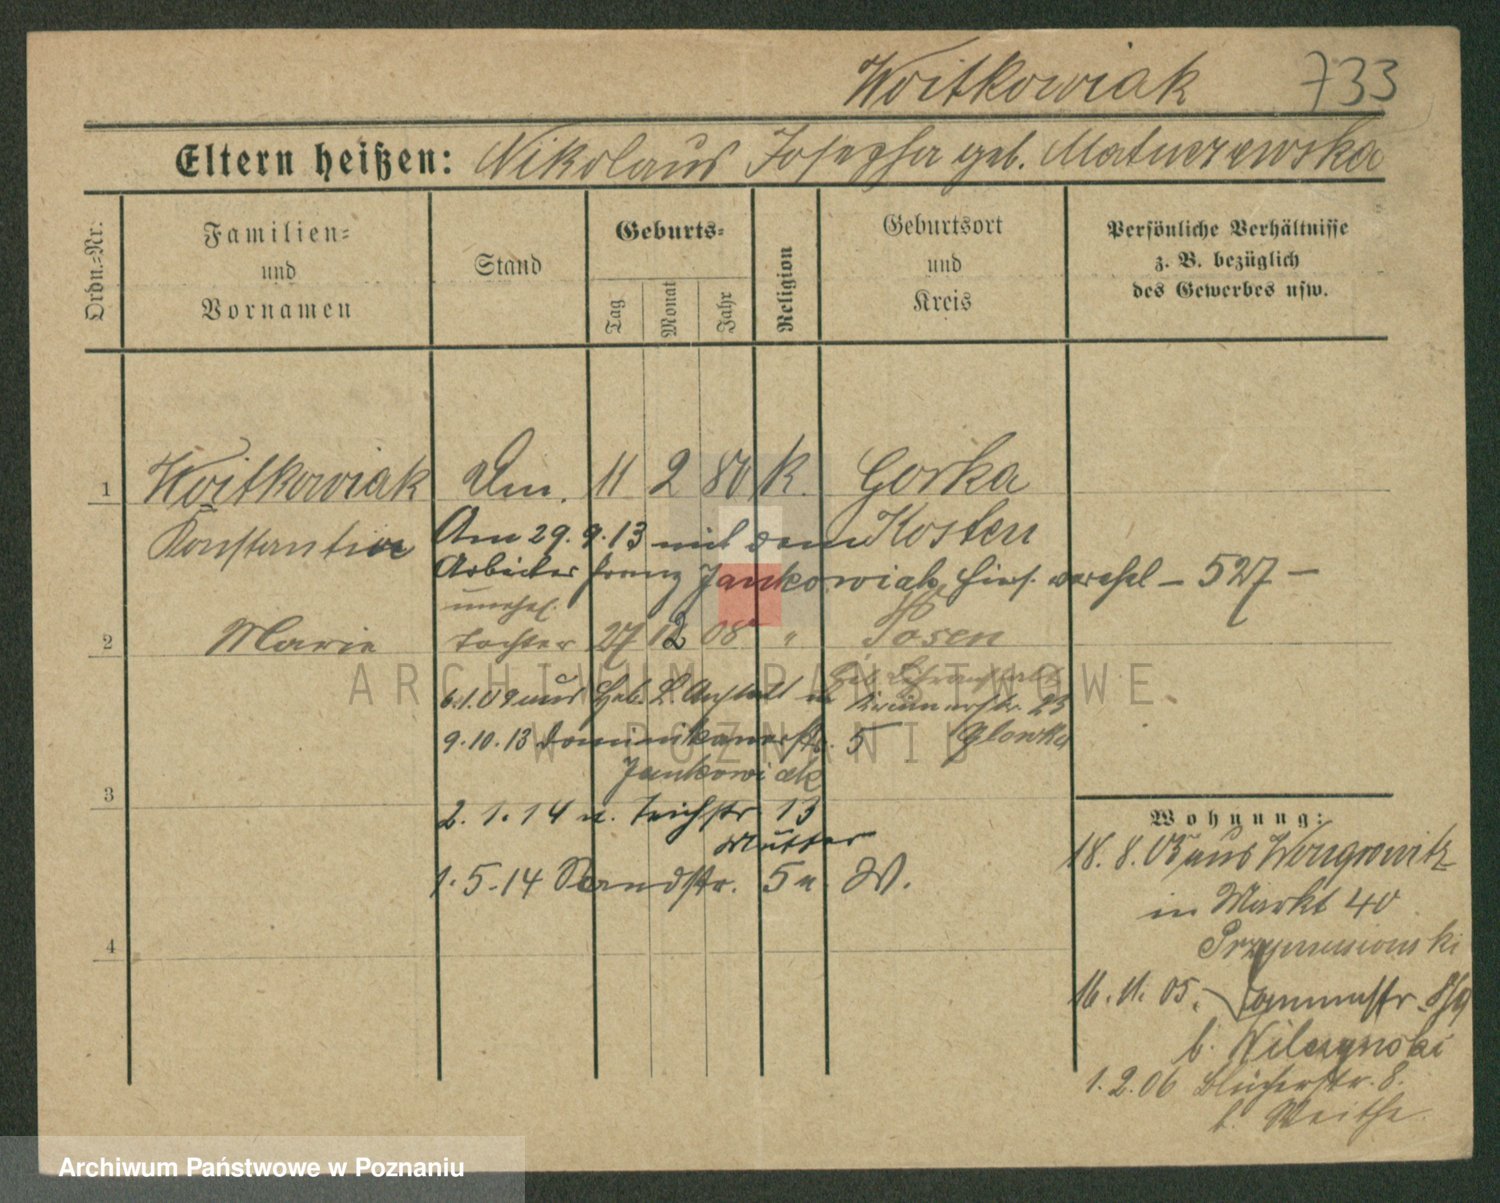 Woitkowiak 733
Eltern heißen: Nikolaus Josepha geb. Matuszewska
Ordn.-Nr.
Familien-
und
Vornamen
Stand
Geburts-
Tag
Monat
Jahr
Religion
Geburtsort
und
Kreis
Persönliche Verhältnisse
z. B. bezüglich
des Gewerbes usw.
1 Woitkowiak 11 2 80 K. Gorka
Konstantia Am 29. 9. 13 mit dem Kosten
Arbeiter Franz Jankowiak hier verehel – 527 –
unehel.
2 Marie Tochter 27 12 08 " Posen
6.1.09 aus Heb. L. Anstalt
9.10.13 Dominikanerstr. 5 Glowka
Jankowiak
3
2. 1. 14 n. Teichstr 13
Mutter
1. 5. 14 Sandstr. 5 n. W.
4
Wohnung:
18. 8. 05 aus Wongrowitz
in Markt 40
16. 11. 05.
b. Wilczynski
1. 2. 06 Blücherstr. 8.
b.
ARCHIWUM PAŃSTWOWE
W POZNANIU
Archiwum Państwowe w Poznaniu